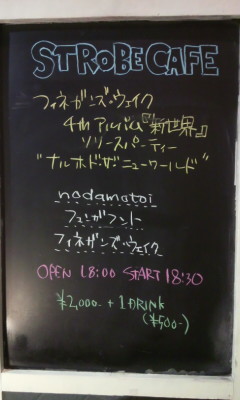 STROBE CAFE
フィネガンズ・ウェイク
4th アルバム『新世界』
リリースパーティー
"ナルホド・ザ・ニューワールド"
nodamotoi
フュガフント
フィネガンズ・ウェイク
OPEN 18:00 START 18:30
¥2,000- + 1DRINK
(¥500-)